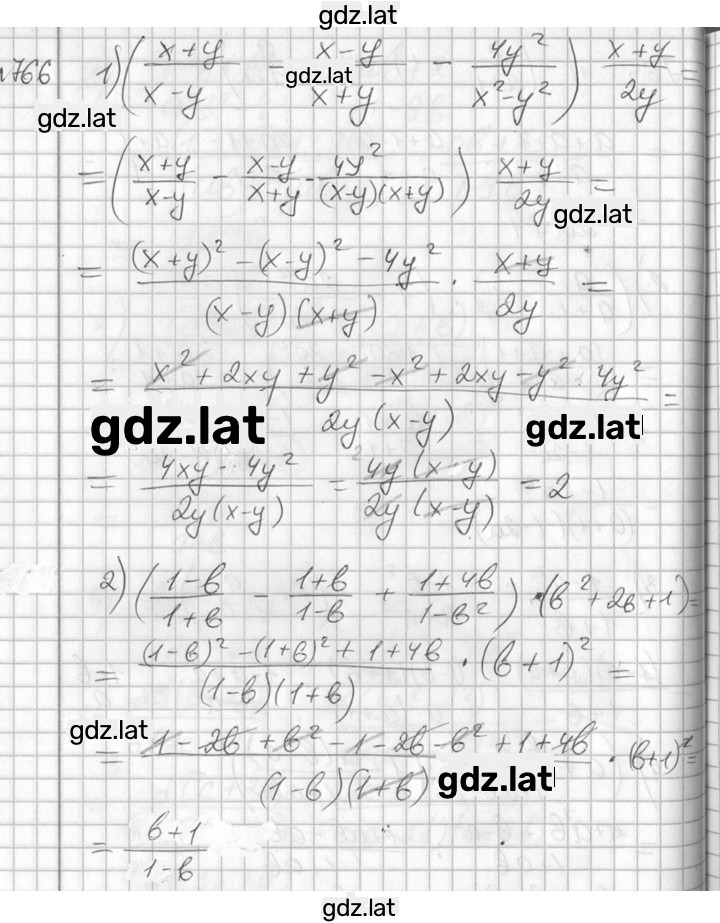 gdz.lat
№766 1) ((x+y)/(x-y) - (x-y)/(x+y) - 4y²/(x²-y²)) (x+y)/2y =
gdz.lat
gdz.lat
= ((x+y)/(x-y) - (x-y)/(x+y) - 4y²/((x-y)(x+y))) (x+y)/2y =
gdz.lat
= ((x+y)² - (x-y)² - 4y²)/((x-y)(x+y)) · (x+y)/2y =
= (x² + 2xy + y² - x² + 2xy - y² - 4y²)/(2y(x-y)) =
gdz.lat gdz.lat
= (4xy - 4y²)/(2y(x-y)) = 4y(x-y)/(2y(x-y)) = 2
2) ((1-b)/(1+b) - (1+b)/(1-b) + (1+4b)/(1-b²)) · (b²+2b+1) =
= ((1-b)² - (1+b)² + 1+4b)/((1-b)(1+b)) · (b+1)² =
gdz.lat
= (1 - 2b + b² - 1 - 2b - b² + 1 + 4b)/((1-b)(1+b)) · (b+1)² =
gdz.lat
= (b+1)/(1-b)
gdz.lat